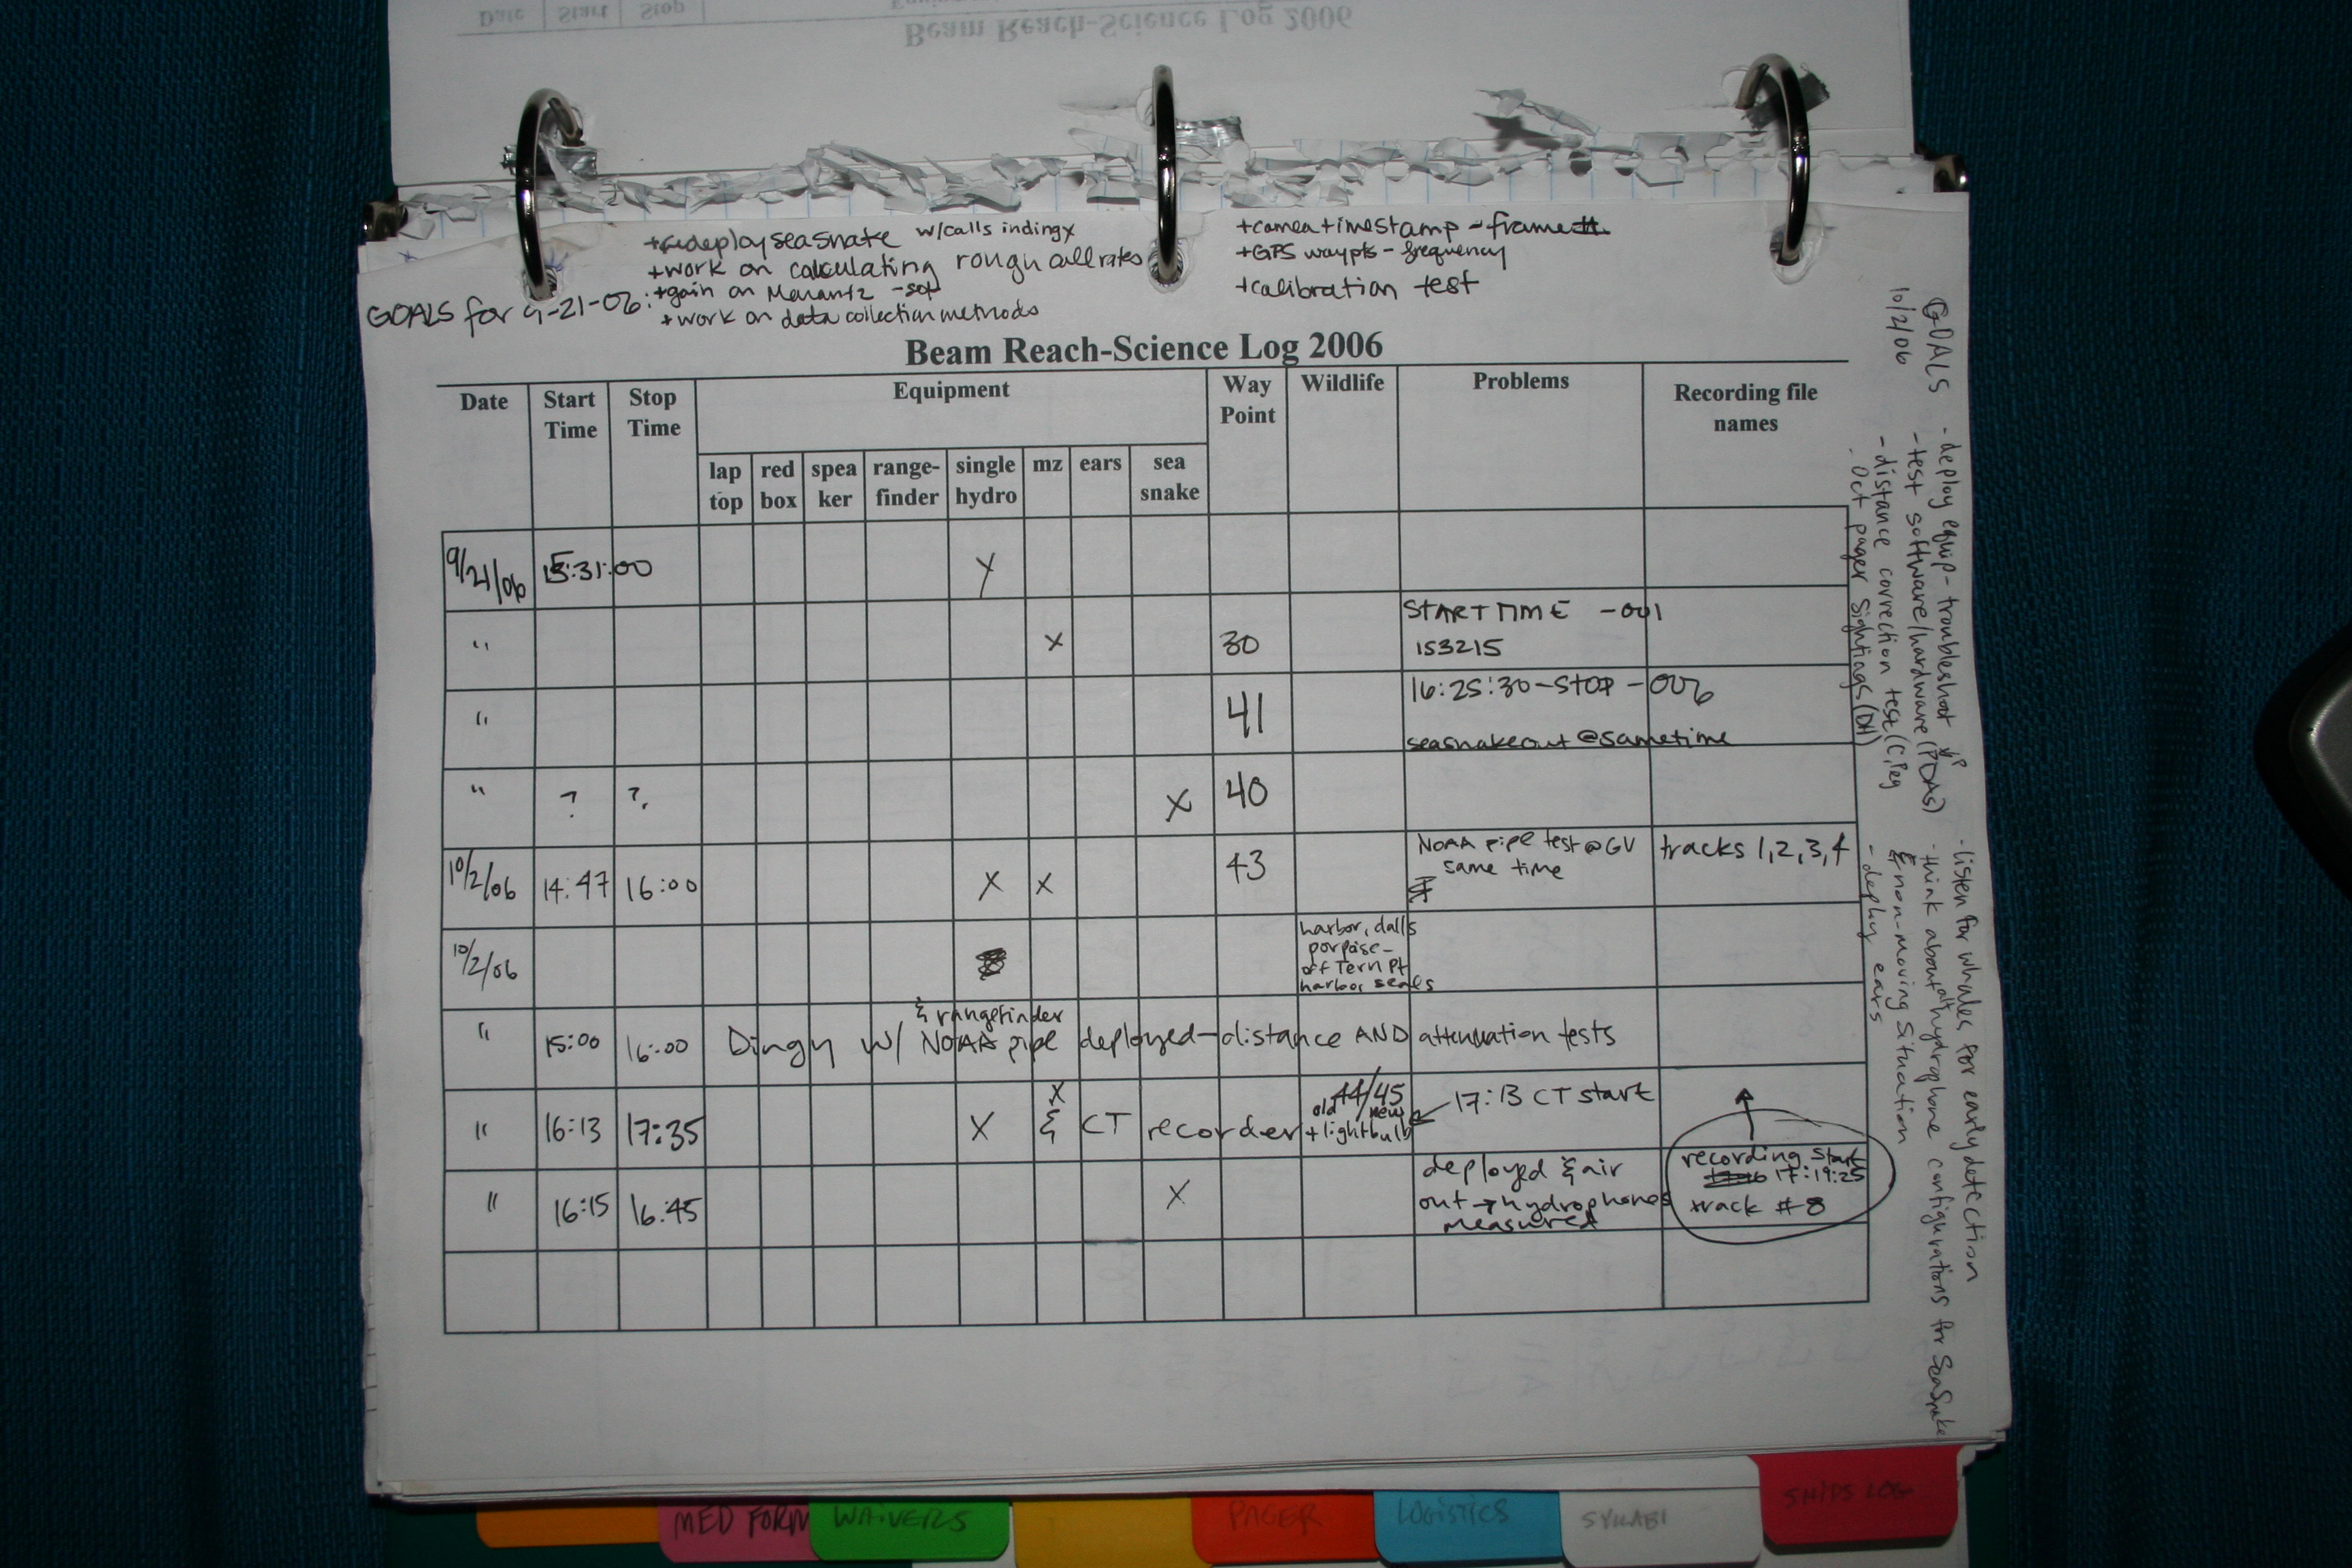 Date Start Stop
Beam Reach-Science Log 2006
+redeploy seasnake w/calls in dingy
+work on calculating rough call rates
+gain on Marantz - set
GOALS for 9-21-06: +work on data collection methods
+camea timestamp - frame #
+GPS waypts - frequency
+calibration test
Beam Reach-Science Log 2006
Date Start Time Stop Time Equipment Way Point Wildlife Problems Recording file names
lap top red box spea ker range-finder single hydro mz ears sea snake
9/21/06 15:31:00 X
" X 30 START TIME -001
153215
" 41 16:25:30-STOP -006
seasnake out @ same time
" ? ? X 40
10/2/06 14:47 16:00 X X 43 NOAA pipe test @ GV same time tracks 1,2,3,4
10/2/06 harbor, dalls
porpoise-
off Tern Pt
harbor seals
& rangefinder
" 15:00 16:00 Dingy w/ NOAA pipe deployed-distance AND attenuation tests
" 16:13 17:35 X X & CT recorder 44/45
old new
+ lightbulb
17:13 CT start
" 16:15 16:45 X deployed & air
out → hydrophones
measured
recording start
17:19:25
track #8
GOALS 10/2/06
- deploy equip - troubleshoot
- test software/hardware (PDAs)
- distance correction test
- Oct pager sightings (DH)
- listen for whales for early detection
- think about alt hydrophone configurations for SeaSnake
& non-moving situation
- deploy ears
MED FORM
WAIVERS
PAGER
LOGISTICS
SYLLABI
SHIPS LOG